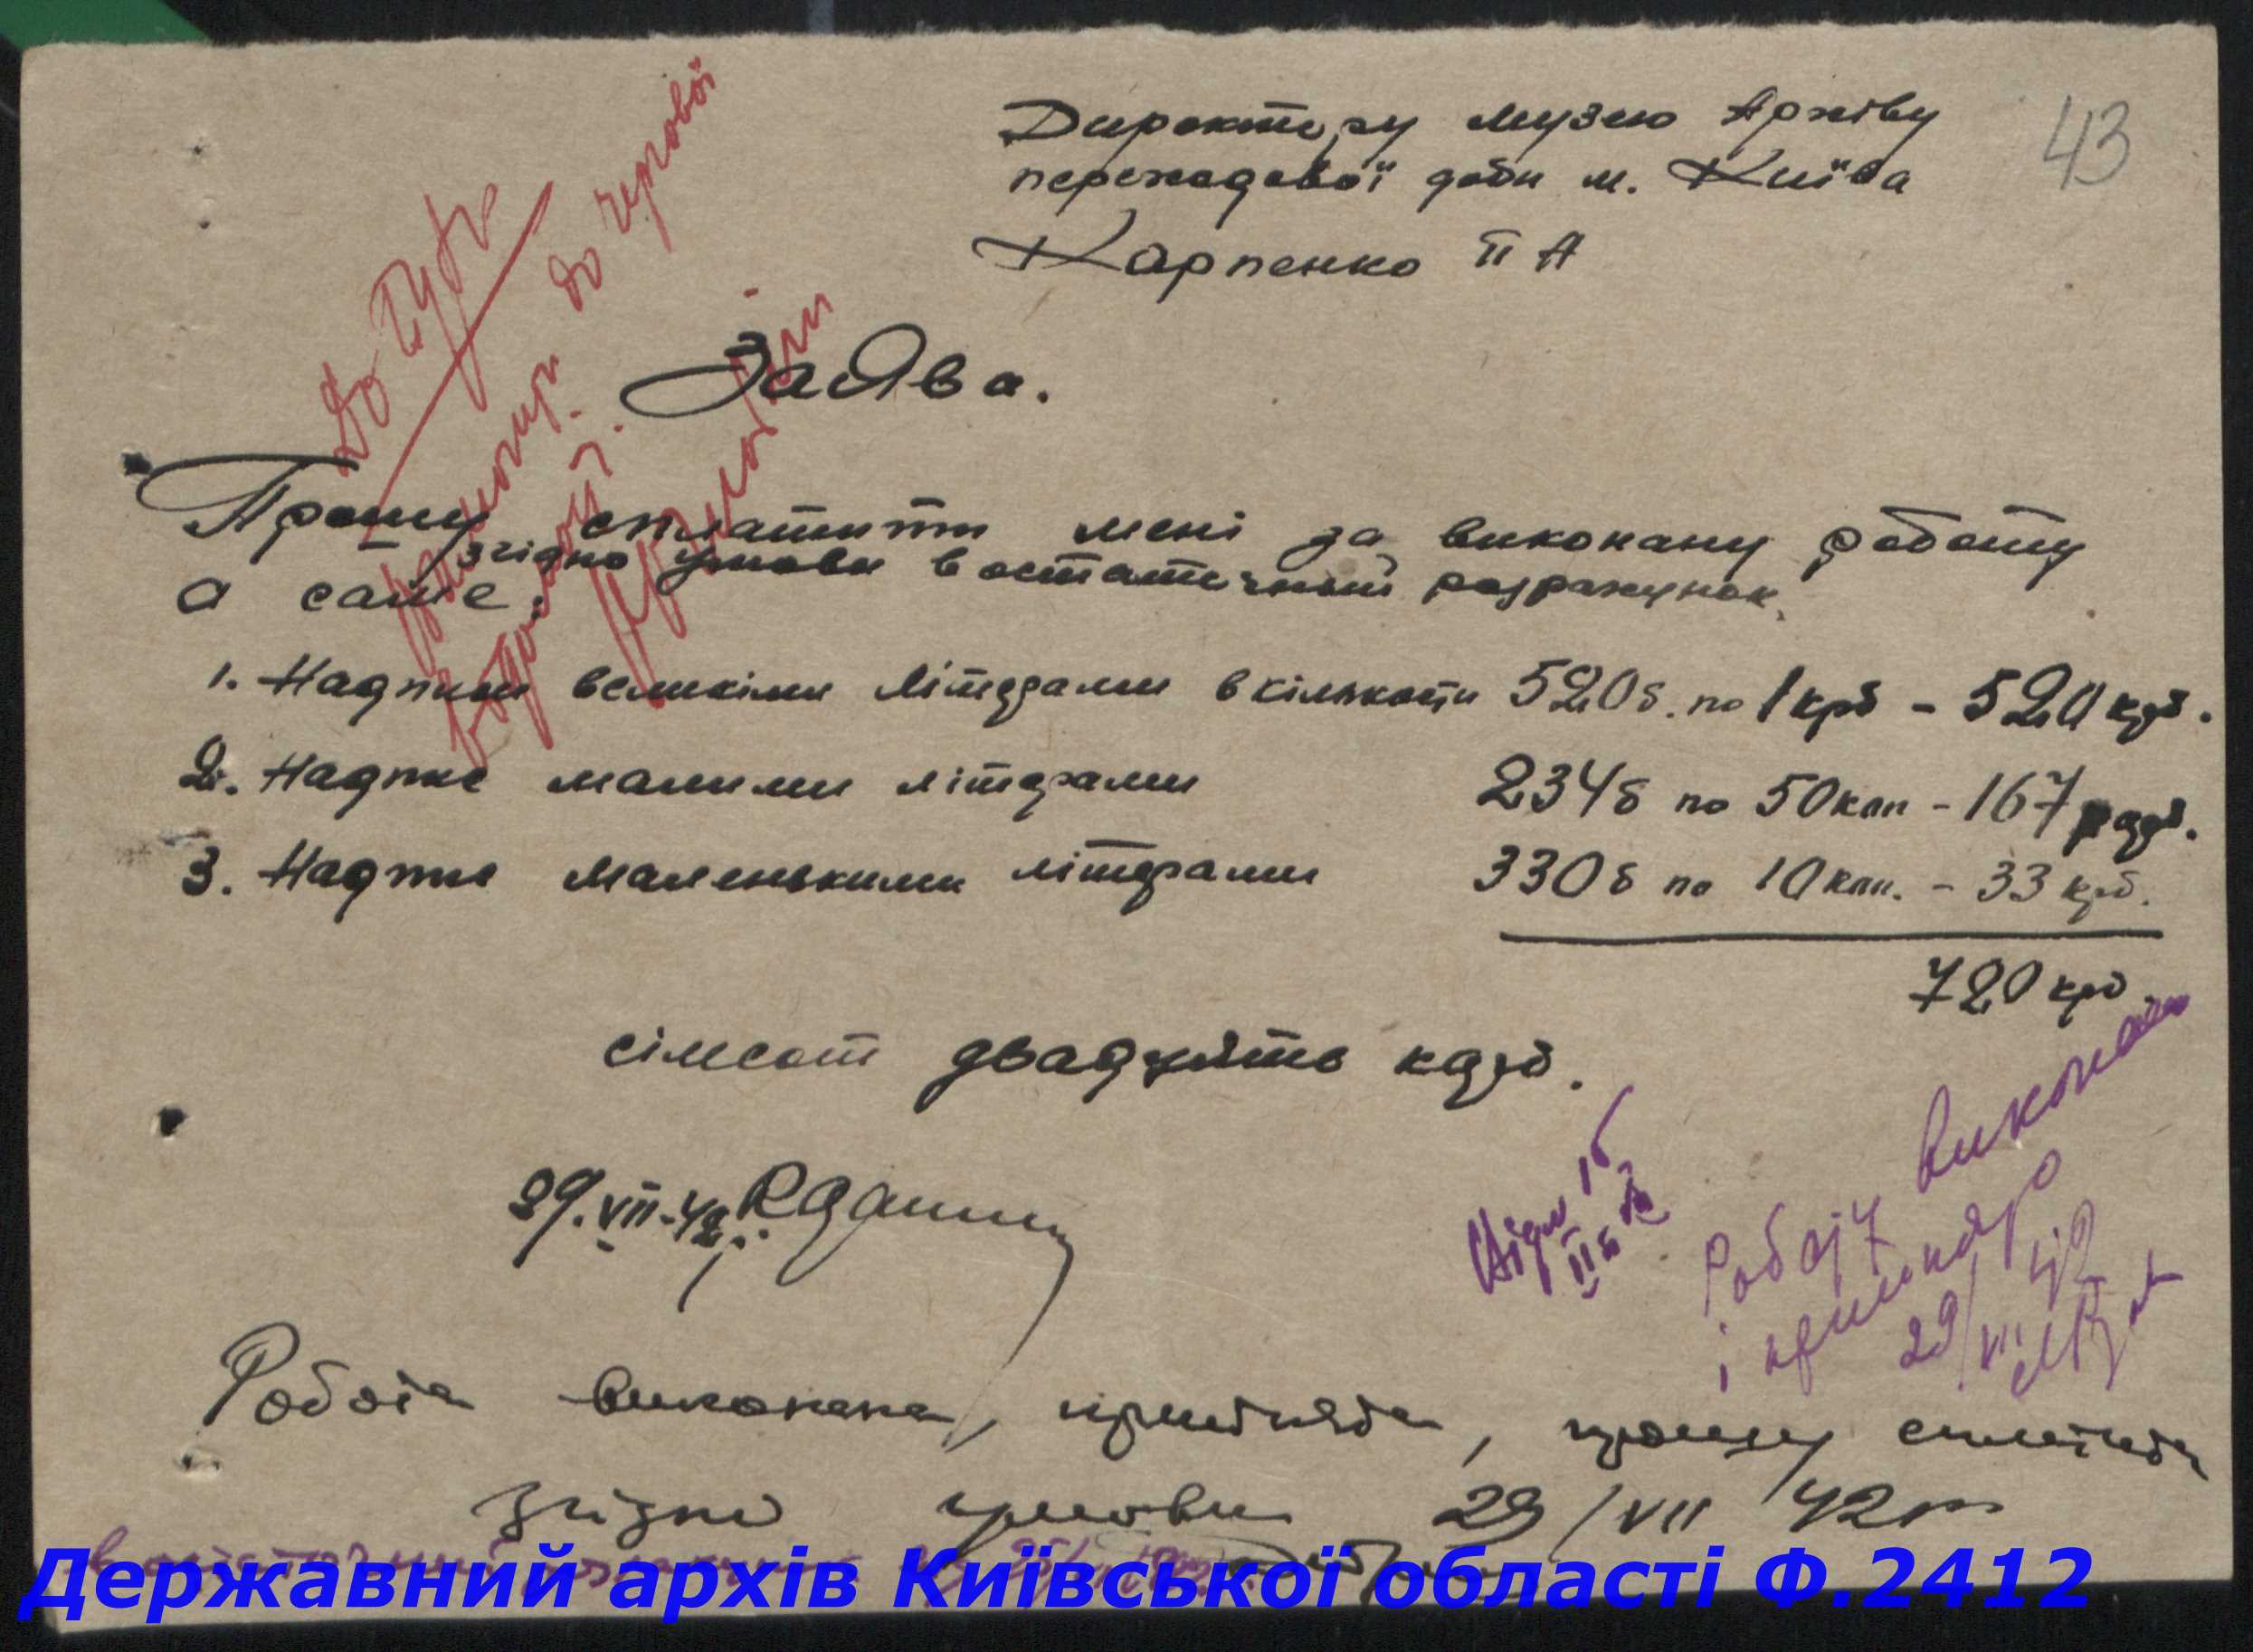 43
Директору музею Архіву
переходової доби м. Київа
Карпенко П А
до чергової
Заява.
Прошу сплатити мені за виконану роботу
згідно умови в остаточний розрахунок.
а саме:
1. Надписи великіми літерами в кількости 520 б. по 1 крб - 520 крб.
2. Надпис малими літерами 234 б по 50 коп - 167 крб.
3. Надпис маленькими літерами 330 б по 10 коп. - 33 крб.
720 крб.
сімсот двадцять крб.
29.VII-42
Роботу виконано
і прийнято
29/VII 42
Робота виконана, прийнята, прошу сплатити
згідно умови 29/VII 42 р
Державний архів Київської області Ф.2412